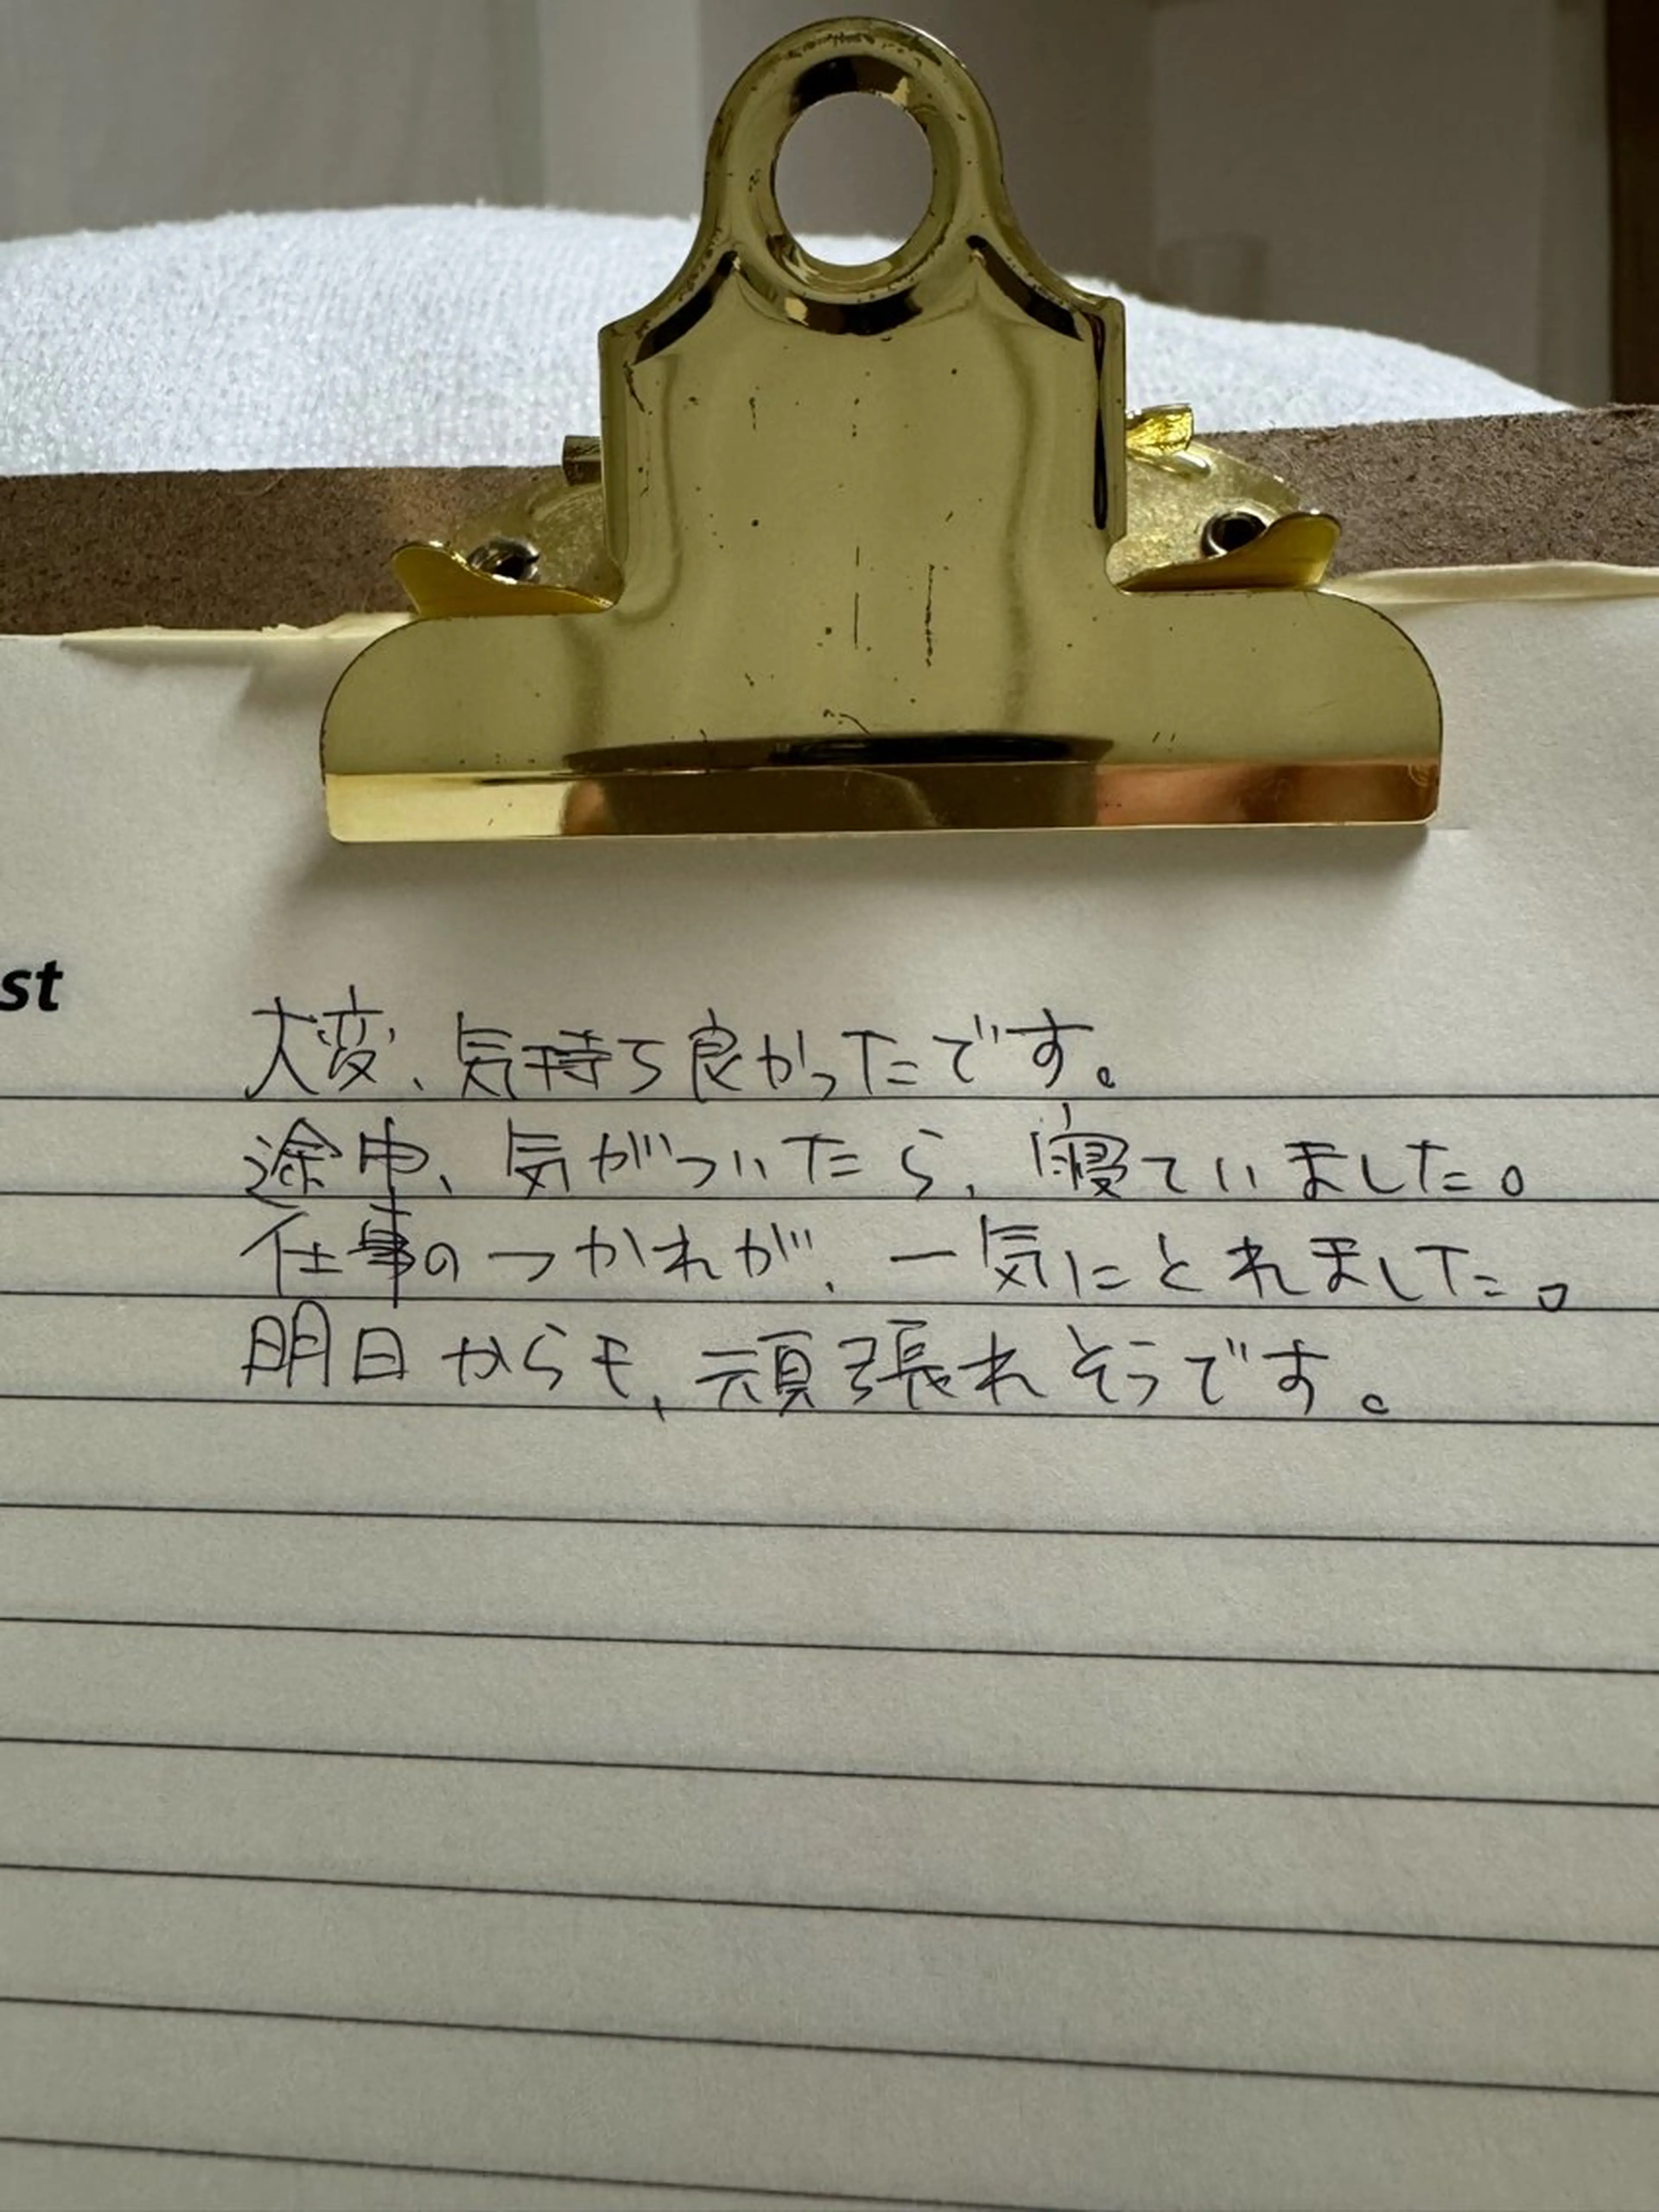 st
大変、気持ち良かったです。
途中、気がついたら、寝ていました。
仕事のつかれが、一気にとれました。
明日からも、頑張れそうです。